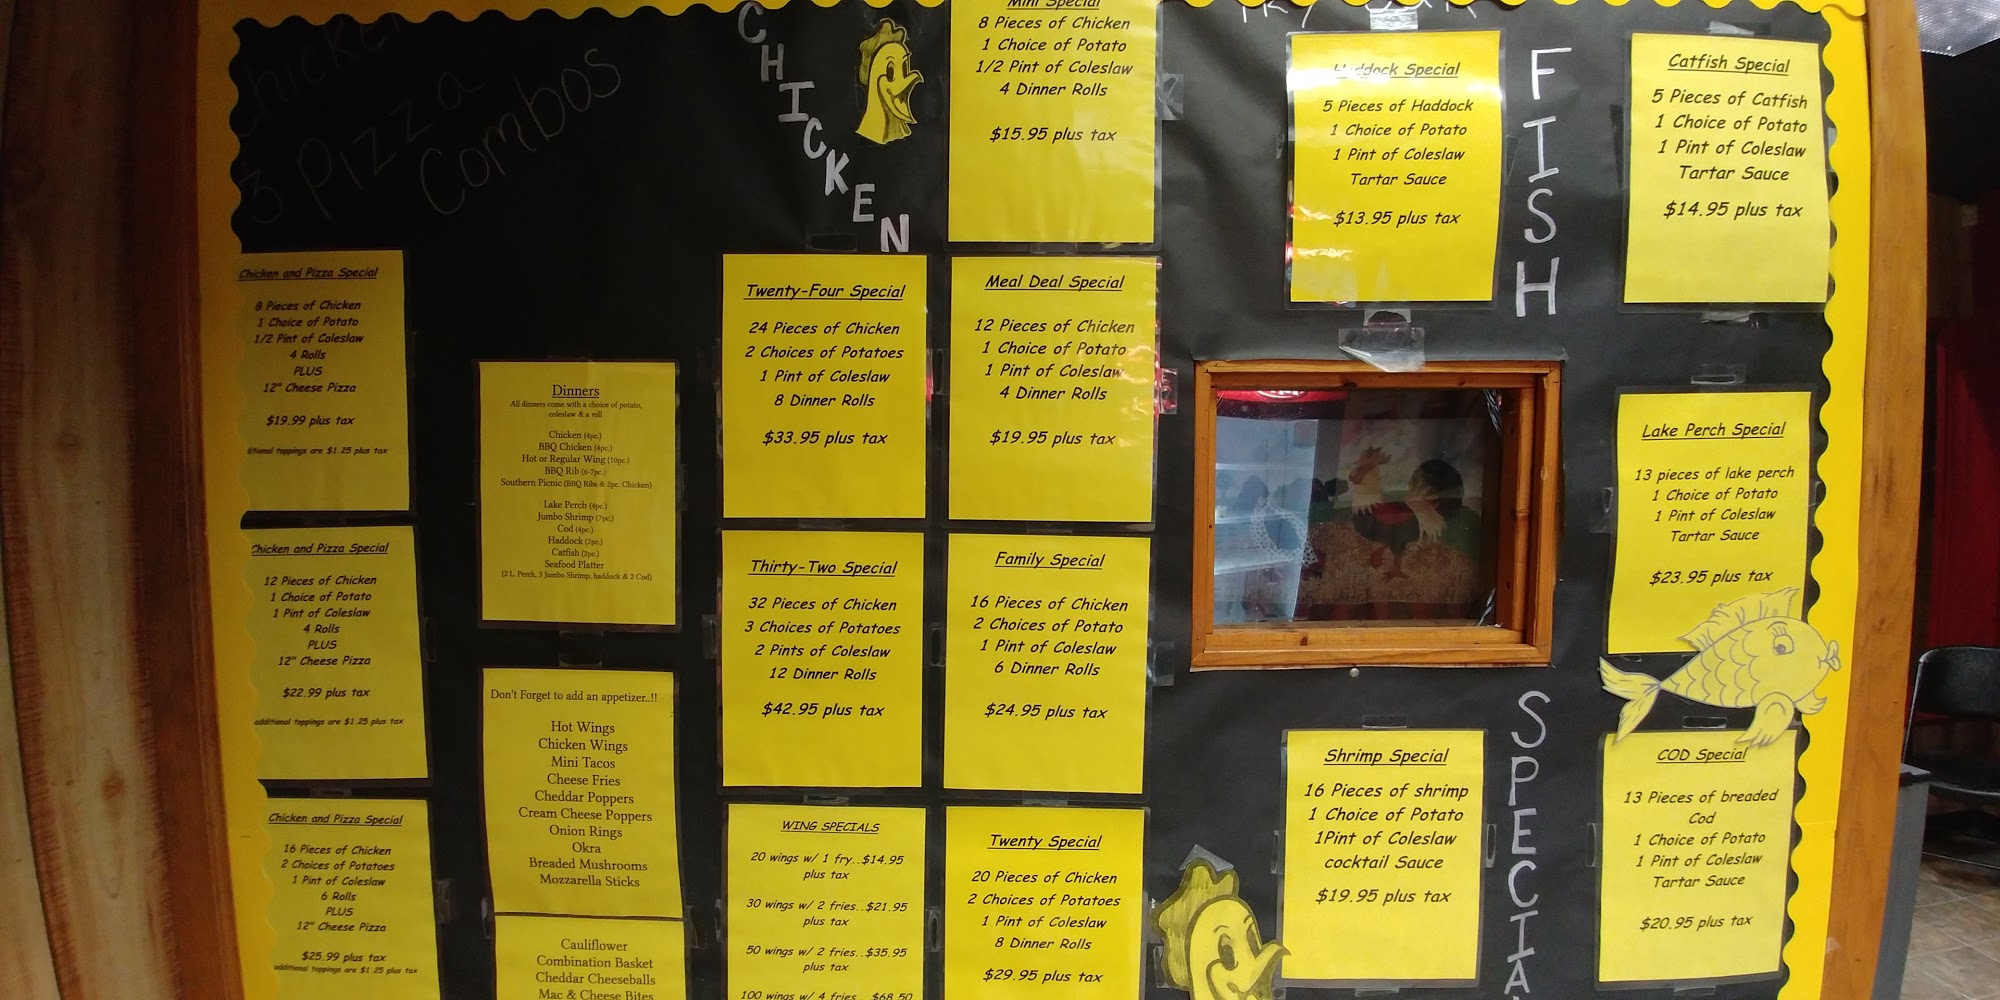 Chicken
3 Pizza
Combos
Chicken and Pizza Special
8 Pieces of Chicken
1 Choice of Potato
1/2 Pint of Coleslaw
4 Rolls
PLUS
12" Cheese Pizza
$19.99 plus tax
toppings are $1.25 plus tax
Chicken and Pizza Special
12 Pieces of Chicken
1 Choice of Potato
1 Pint of Coleslaw
4 Rolls
PLUS
12" Cheese Pizza
$22.99 plus tax
additional toppings are $1.25 plus tax
Chicken and Pizza Special
16 Pieces of Chicken
2 Choices of Potatoes
1 Pint of Coleslaw
6 Rolls
PLUS
12" Cheese Pizza
$25.99 plus tax
additional toppings are $1.25 plus tax
Dinners
All dinners come with a choice of potato,
coleslaw & a roll
Chicken (4pc.)
BBQ Chicken (4pc.)
Hot or Regular Wing (10pc.)
BBQ Rib (6-7pc.)
Southern Picnic (BBQ Ribs & 2pc. Chicken)
Lake Perch (4pc.)
Jumbo Shrimp (7pc.)
Cod (4pc.)
Haddock (2pc.)
Catfish (2pc.)
Seafood Platter
(2 L. Perch, 3 Jumbo Shrimp, haddock & 2 Cod)
Don't Forget to add an appetizer..!!
Hot Wings
Chicken Wings
Mini Tacos
Cheese Fries
Cheddar Poppers
Cream Cheese Poppers
Onion Rings
Okra
Breaded Mushrooms
Mozzarella Sticks
Cauliflower
Combination Basket
Cheddar Cheeseballs
Mac & Cheese Bites
CHICKEN
Twenty-Four Special
24 Pieces of Chicken
2 Choices of Potatoes
1 Pint of Coleslaw
8 Dinner Rolls
$33.95 plus tax
Thirty-Two Special
32 Pieces of Chicken
3 Choices of Potatoes
2 Pints of Coleslaw
12 Dinner Rolls
$42.95 plus tax
WING SPECIALS
20 wings w/ 1 fry..$14.95
plus tax
30 wings w/ 2 fries..$21.95
plus tax
50 wings w/ 2 fries..$35.95
plus tax
100 wings w/ 4 fries...$68.50
Mini Special
8 Pieces of Chicken
1 Choice of Potato
1/2 Pint of Coleslaw
4 Dinner Rolls
$15.95 plus tax
Meal Deal Special
12 Pieces of Chicken
1 Choice of Potato
1 Pint of Coleslaw
4 Dinner Rolls
$19.95 plus tax
Family Special
16 Pieces of Chicken
2 Choices of Potato
1 Pint of Coleslaw
6 Dinner Rolls
$24.95 plus tax
Twenty Special
20 Pieces of Chicken
2 Choices of Potatoes
1 Pint of Coleslaw
8 Dinner Rolls
$29.95 plus tax
Haddock Special
5 Pieces of Haddock
1 Choice of Potato
1 Pint of Coleslaw
Tartar Sauce
$13.95 plus tax
FISH
SPECIA
Shrimp Special
16 Pieces of shrimp
1 Choice of Potato
1Pint of Coleslaw
cocktail Sauce
$19.95 plus tax
Catfish Special
5 Pieces of Catfish
1 Choice of Potato
1 Pint of Coleslaw
Tartar Sauce
$14.95 plus tax
Lake Perch Special
13 pieces of lake perch
1 Choice of Potato
1 Pint of Coleslaw
Tartar Sauce
$23.95 plus tax
COD Special
13 Pieces of breaded
Cod
1 Choice of Potato
1 Pint of Coleslaw
Tartar Sauce
$20.95 plus tax